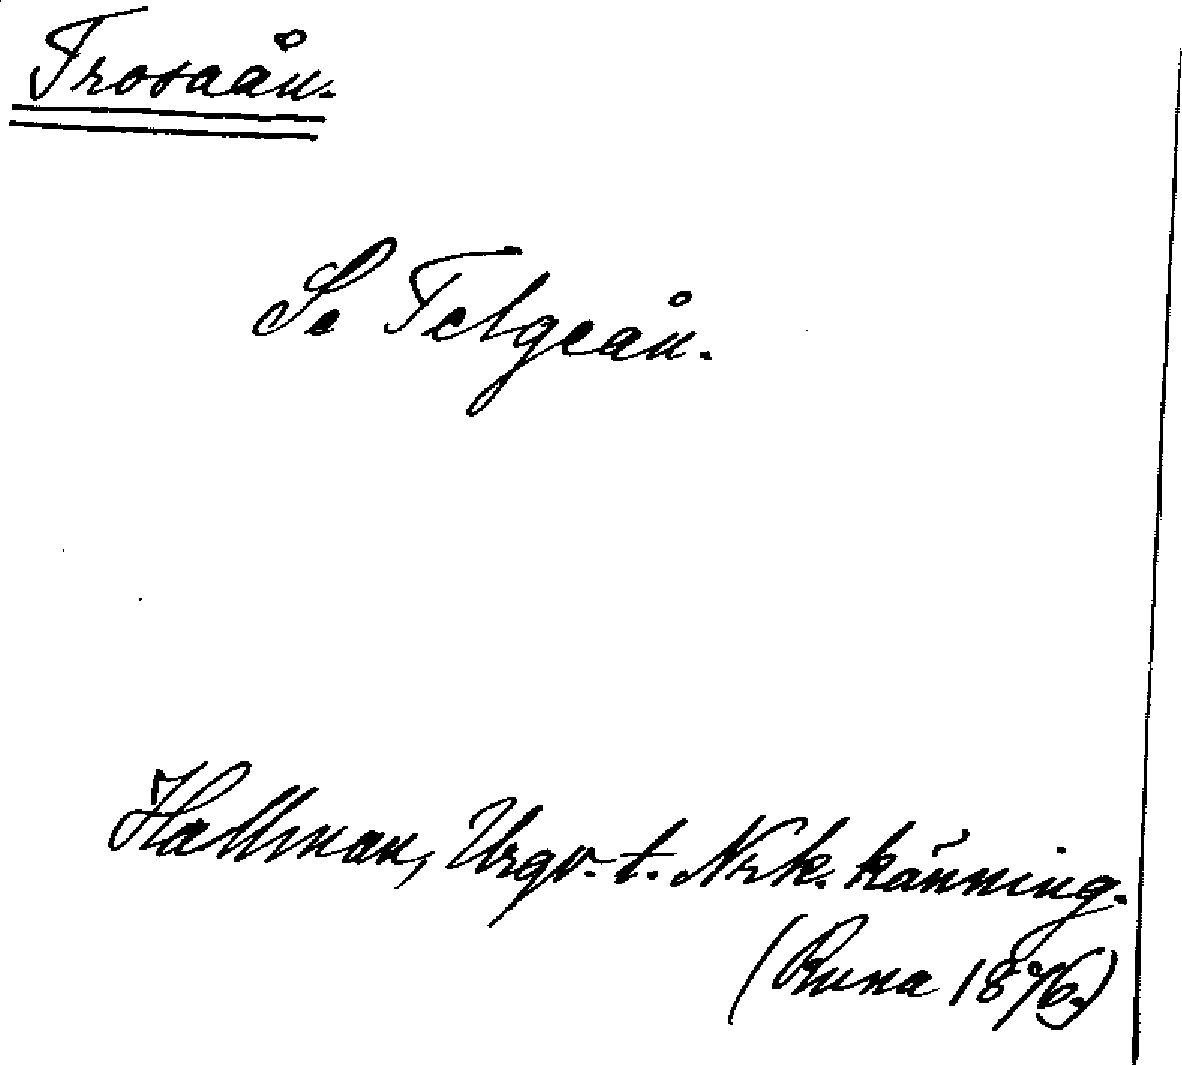 Trosaån.
Se Telgeån.
Hallman, Urgv. t. Nrk. känning.
(Runa 1876.)